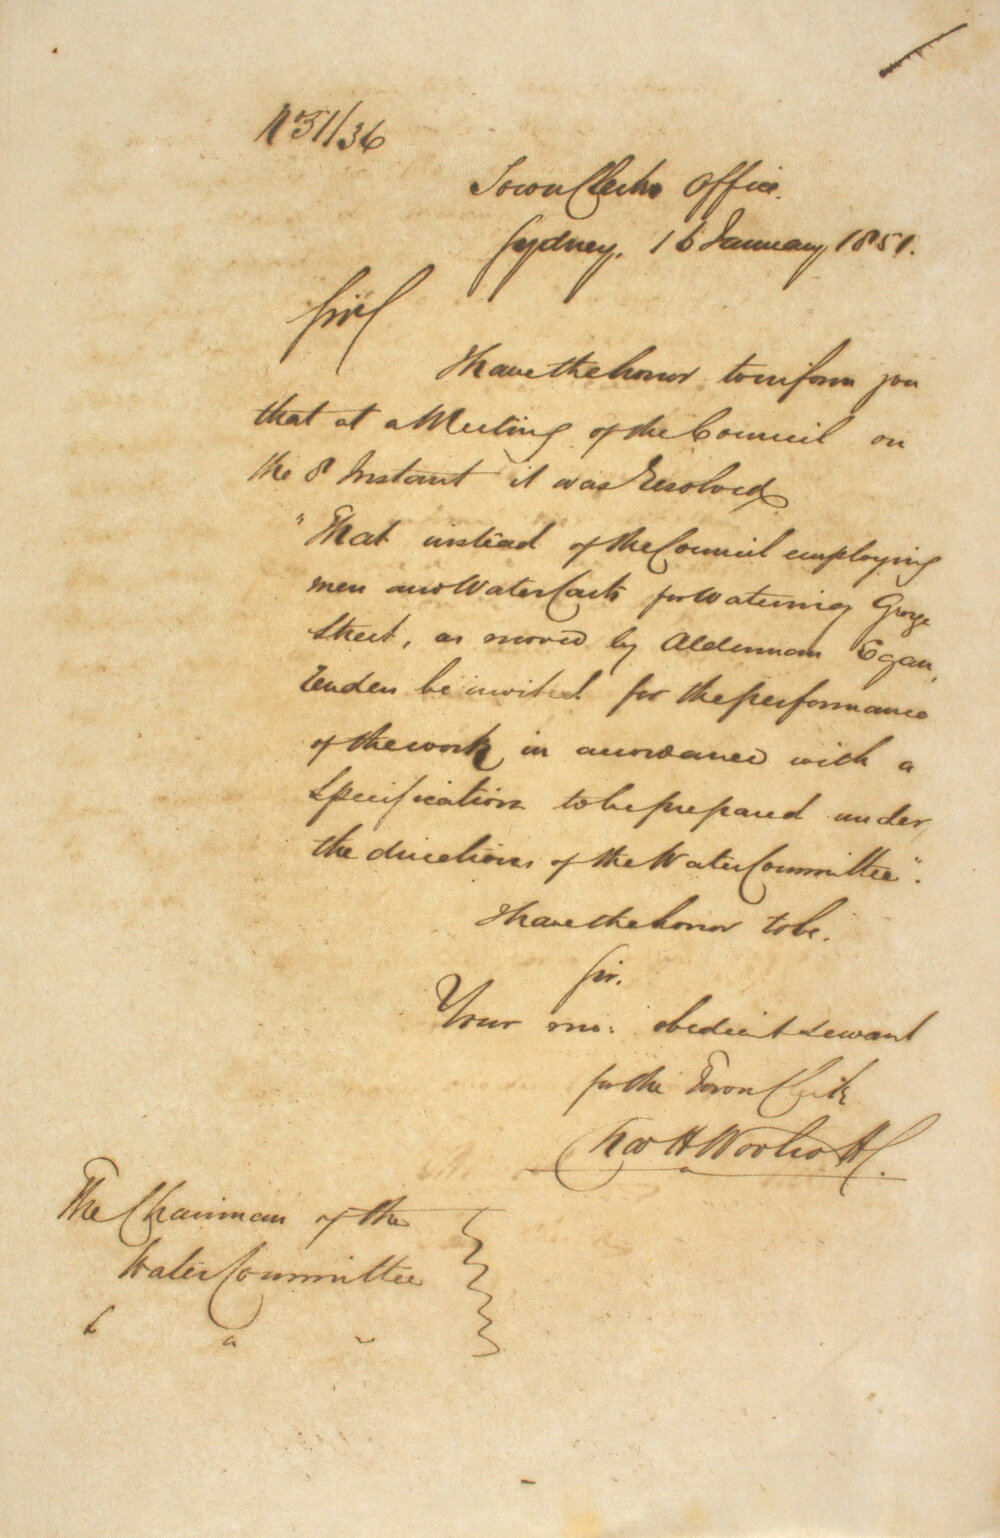 No 51/36
Town Clerks Office.
Sydney, 16 January 1851.
Sir
I have the honor to inform you
that at a Meeting of the Council on
the 8 Instant it was Resolved
"That instead of the Council employing
men and Water Carts for Watering George
Street, as moved by Alderman Egan,
Tenders be invited for the performance
of the work in accordance with a
Specification to be prepared under
the directions of the Water Committee".
I have the honor to be.
Sir.
Your mo: obedient servant
for the Town Clerk
Chas H Woolcott
The Chairman of the
Water Committee